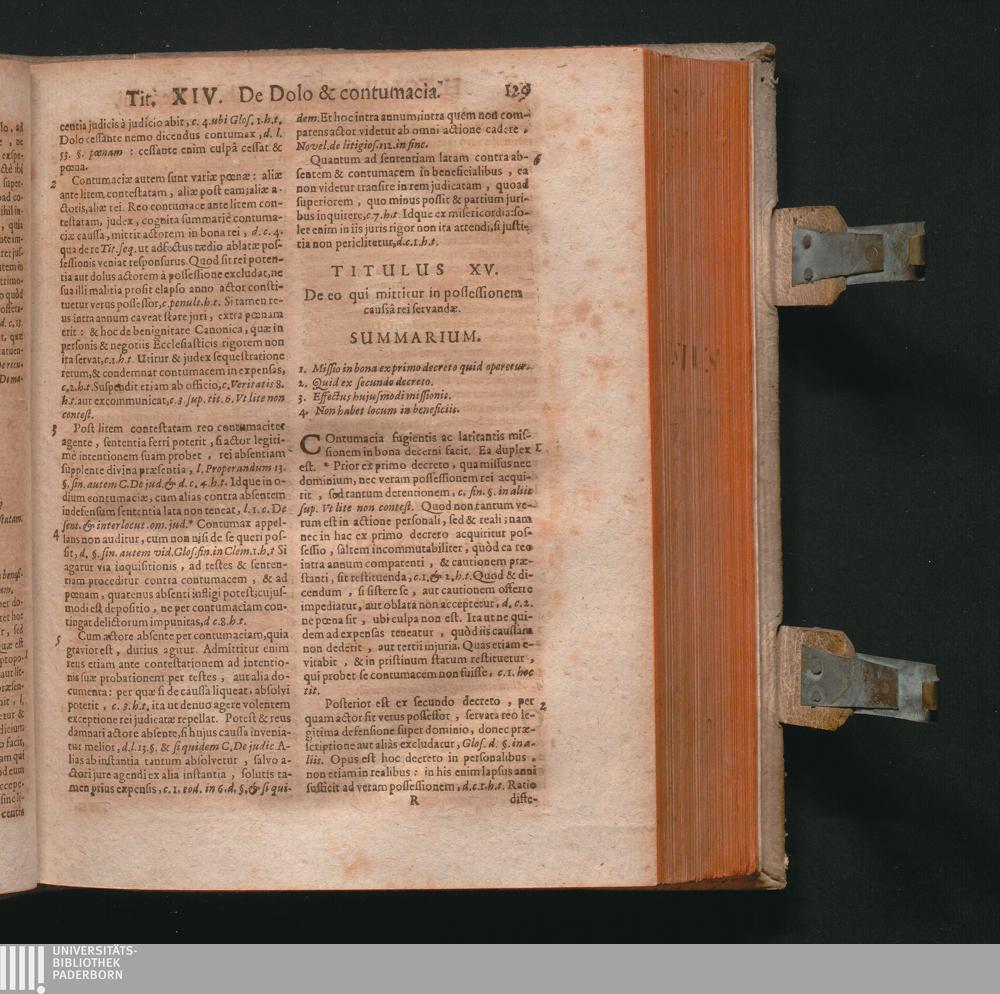 Tit. XIV. De Dolo & contumacia. 129
centia judicis à judicio abit, c. 4. ubi Glos. 1. h. t.
Dolo cessante nemo dicendus contumax, d. l.
53. §. pœnam : cessante enim culpâ cessat &
pœna.
2 Contumaciæ autem sunt variæ pœnæ : aliæ
ante litem contestatam, aliæ post eam; aliæ a-
ctoris, aliæ rei. Reo contumace ante litem con-
testatam, judex, cognita summariè contuma-
ciæ caussa, mittit actorem in bona rei, d. c. 4.
qua de re Tit. seq. ut adfectus tædio ablatæ pos-
sessionis veniat responsurus. Quod si rei poten-
tia aut dolus actorem à possessione excludat, ne
sua illi malitia prosit elapso anno actor consti-
tuetur verus possessor, c. penult. h. t. Si tamen re-
us intra annum caveat stare juri, extra pœnam
erit : & hoc de benignitate Canonica, quæ in
personis & negotiis Ecclesiasticis rigorem non
ita servat, c. 1. h. t. Utitur & judex sequestratione
rerum, & condemnat contumacem in expensas,
c. 2. h. t. Suspendit etiam ab officio, c. Veritatis 8.
h. t. aut excommunicat, c. 3. sup. tit. 6. Vt lite non
contest.
3 Post litem contestatam reo contumaciter
agente, sententia ferri poterit, si actor legiti-
mè intentionem suam probet, rei absentiam
supplente divina præsentia, l. Properandum 13.
§. sin. autem C. De jud. & d. c. 4. h. t. Idque in o-
dium contumaciæ, cum alias contra absentem
indefensum sententia lata non teneat, l. 1. c. De
sent. & interlocut. om. jud. * Contumax appel-
4 lans non auditur, cum non nisi de se queri pos-
sit, d. §. sin. autem vid. Glos. fin. in Clem. 1. h. t Si
agatur via inquisitionis, ad testes & senten-
tiam proceditur contra contumacem, & ad
pœnam, quatenus absenti infligi potest; cujus-
modi est depositio, ne per contumaciam con-
tingat delictorum impunitas, d c. 8. h. t.
5 Cum actore absente per contumaciam, quia
gravior est, durius agitur. Admittitur enim
reus etiam ante contestationem ad intentio-
nis suæ probationem per testes, aut alia do-
cumenta : per quæ si de caussa liqueat, absolvi
poterit, c. 3. h. t. ita ut denuo agere volentem
exceptione rei judicatæ repellat. Potest & reus
damnari actore absente, si hujus caussa invenia-
tur melior, d. l. 13. §. & si quidem C. De judic A-
lias ab instantia tantum absolvetur, salvo a-
ctori jure agendi ex alia instantia, solutis ta-
men prius expensis, c. 1. eod. in 6. d. §. & si qui-
dem. Et hoc intra annum; intra quem non com-
parens actor videtur ab omni actione cadere.
Novel. de litigios. 112. in fine.
Quantum ad sententiam latam contra ab- 6
sentem & contumacem in beneficialibus, ea
non videtur transire in rem judicatam, quoad
superiorem, quo minus possit & partium juri-
bus inquirere, c. 7. h. t. Idque ex misericordia: so-
let enim in iis juris rigor non ita attendi, si justi-
tia non periclitetur, d. c. 1. h. t.
TITULUS XV.
De eo qui mittitur in possessionem
caussâ rei servandæ.
SUMMARIUM.
1. Missio in bona ex primo decreto quid operetur.
2. Quid ex secundo decreto.
3. Effectus hujusmodi missionis.
4. Non habet locum in beneficiis.
COntumacia fugientis ac latitantis mis-
sionem in bona decerni facit. Ea duplex 1
est. * Prior ex primo decreto, qua missus nec
dominium, nec veram possessionem rei acqui-
rit, sed tantum detentionem, c. fin. §. in aliis
sup. Vt lite non contest. Quod non tantum ve-
rum est in actione personali, sed & reali; nam
nec in hac ex primo decreto acquiritur pos-
sessio, saltem incommutabiliter, quòd ea reo
intra annum comparenti, & cautionem præ-
stanti, sit restituenda, c. 1. & 2. h. t. Quod & di-
cendum, si sistere se, aut cautionem offerre
impediatur, aut oblata non acceptetur, d. c. 2.
ne pœna sit, ubi culpa non est. Ita ut ne qui-
dem ad expensas teneatur, quòd iis caussam
non dederit, aut tertii injuria. Quas etiam e-
vitabit, & in pristinum statum restituetur,
qui probet se contumacem non fuisse, c. 1. hoc
tit.
Posterior est ex secundo decreto, per 2
quam actor sit verus possessor, servata reo le-
gitima defensione super dominio, donec præ-
scriptione aut aliàs excludatur, Glos. d. §. in a-
liis. Opus est hoc decreto in personalibus.
non etiam in realibus : in his enim lapsus anni
sufficit ad veram possessionem, d. c. 1. h. t. Ratio
R diffe-
UNIVERSITÄTS-
BIBLIOTHEK
PADERBORN